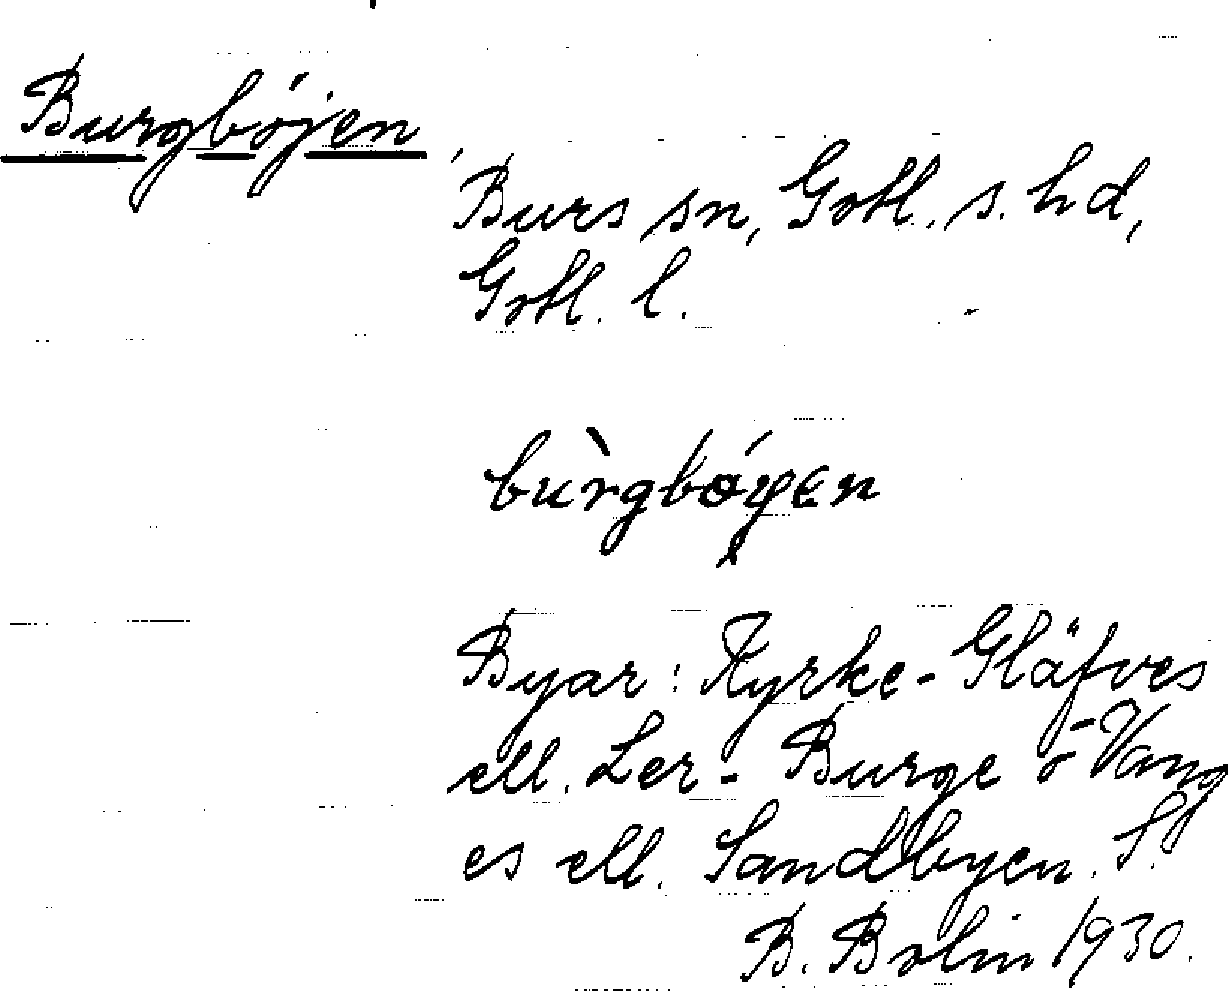 Burgböjen,
Burs sn, Gotl. s. hd,
Gotl. l.
bùrgbǿyen
Byar: Kyrke-Gläfves
ell. Ler-Burge o Vang
es ell. Sandbyen. S.
B. Bolin 1930.